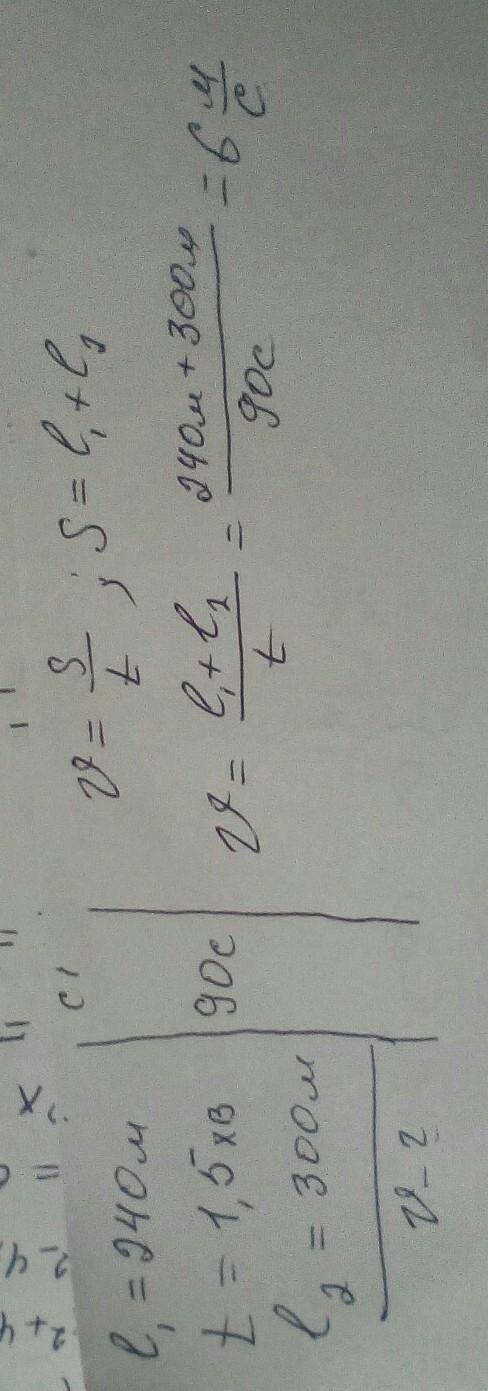 l₁ = 240м
t = 1,5хв
l₂ = 300м
υ - ?
СІ
90с
υ = S/t ; S = l₁ + l₂
υ = (l₁ + l₂)/t = (240м + 300м)/90с = 6 м/с